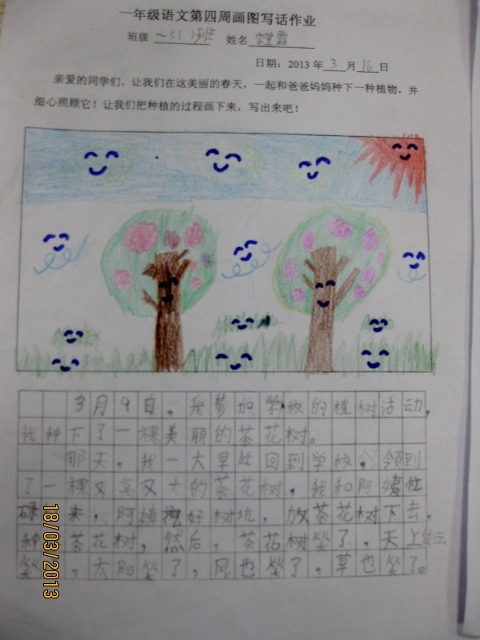 一年级语文第四周画图写话作业
班级 一(1)班 姓名
日期：2013 年 3 月 16 日
亲爱的同学们，让我们在这美丽的春天，一起和爸爸妈妈种下一种植物，并
细心照顾它！让我们把种植的过程画下来，写出来吧！
3月9日，我参加学校的植树活动，
我种下了一棵美丽的茶花树。
那天，我一大早赶回到学校，领到
了一棵又高又大的茶花树，我和阿姨
来，阿姨挖好树坑，放茶花树下去，
种 茶花树，然后 茶花树笑了，天上
笑，太阳笑了，风也笑了，草也笑了。
18/03/2013